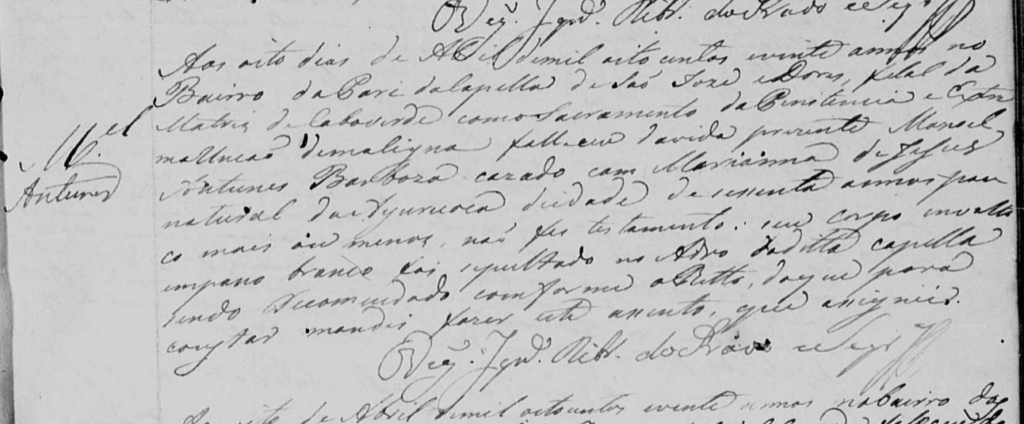 O Vig.º Ign.º Ribr.º do Prado e Seqr.ª
M.el
Antunes
Aos oito dias de Abril de mil oito centos e vinte annos no
Bairro da Pari da Capella de Sao Joze e Dores, filal da
Matriz de Caboverde com o Sacramento da Penitencia e Extre
ma Unção de maligna falleceu da vida prezente Manoel
Antunes Barboza cazado com Marianna de Jesus
natural da Ayuruoca de idade de secenta annos pou
co mais ou menos, não fes testamento: seu corpo involto
em pano branco foi sepultado no Adro da ditta capella
sendo recomendado comforme o Ritto, do que para
constar mandei fazer este acento, que asignei.
O Vig.º Ign.º Ribr.º do Prado e Seqr.ª
de Abril de mil oito centos e vinte annos no bairro dos